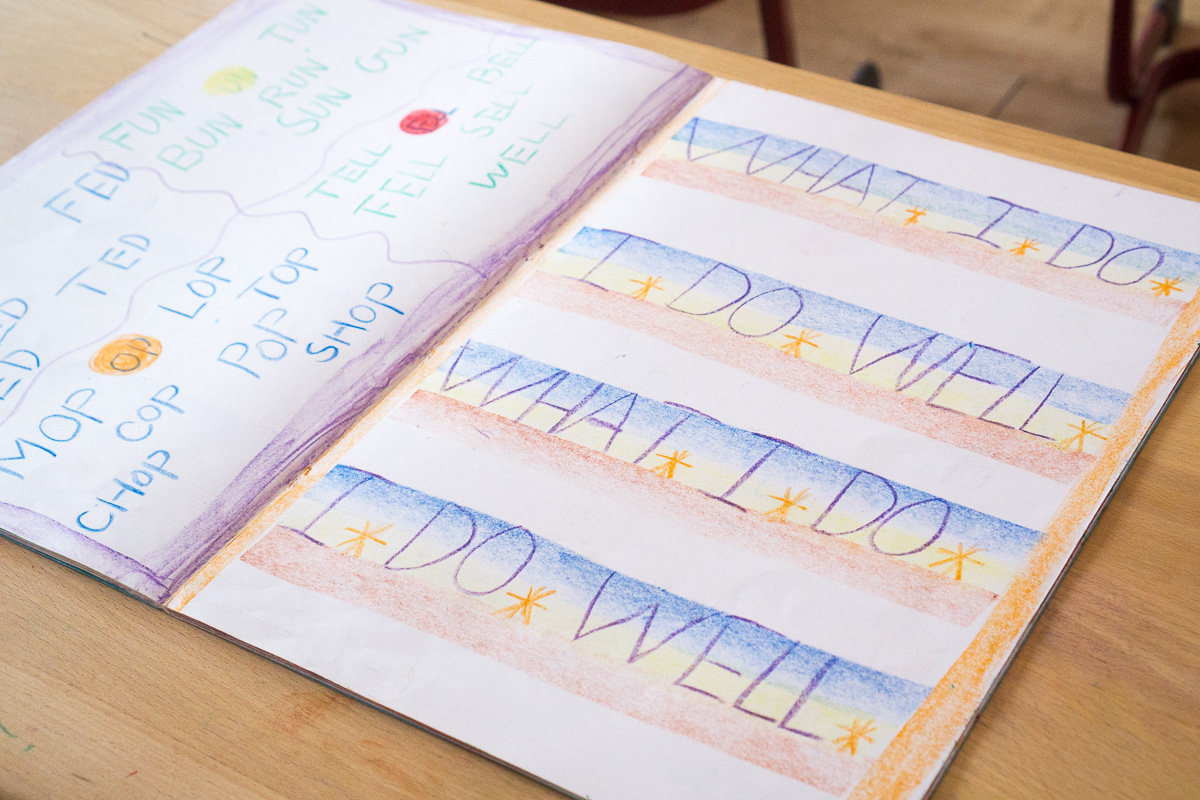 TUN
FUN UN RUN GUN
BUN SUN
BELL
TELL SELL
FELL WELL
FED
TED
LOP TOP
OP POP SHOP
MOP COP
CHOP
WHAT I DO
I DO WELL
WHAT I DO
I DO WELL